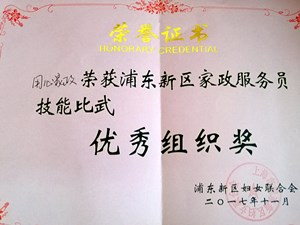 荣誉证书
HONORARY CREDENTIAL
荣获浦东新区家政服务员
技能比武
优秀组织奖
浦东新区妇女联合会
二〇一七年十一月